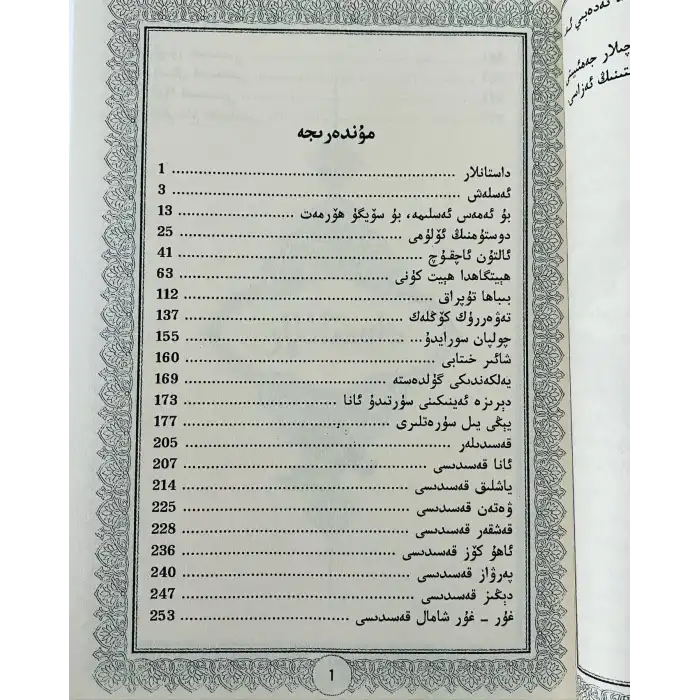 مۇندەرىجە
داستانلار ........ 1
ئەسلەش ........ 3
بۇ ئەمەس ئەسلىمە، بۇ سۆيگۈ ھۆرمەت ........ 13
دوستۇمنىڭ ئۆلۈمى ........ 25
ئالتۇن ئاچقۇچ ........ 41
ھېيتگاھدا ھېيت كۈنى ........ 63
بىباھا تۇپراق ........ 112
تەۋەررۈك كۆڭلەك ........ 137
چولپان سورايدۇ... ........ 155
شائىر خىتابى ........ 160
يەلكەندىكى گۈلدەستە ........ 169
دېرىزە ئەينىكىنى سۈرتىدۇ ئانا ........ 173
يېڭى يىل سۈرەتلىرى ........ 177
قەسىدىلەر ........ 205
ئانا قەسىدىسى ........ 207
ياشلىق قەسىدىسى ........ 214
ۋەتەن قەسىدىسى ........ 225
قەشقەر قەسىدىسى ........ 228
ئاھۇ كۆز قەسىدىسى ........ 236
پەرۋاز قەسىدىسى ........ 240
دېڭىز قەسىدىسى ........ 247
غۇر - غۇر شامال قەسىدىسى ........ 253
1